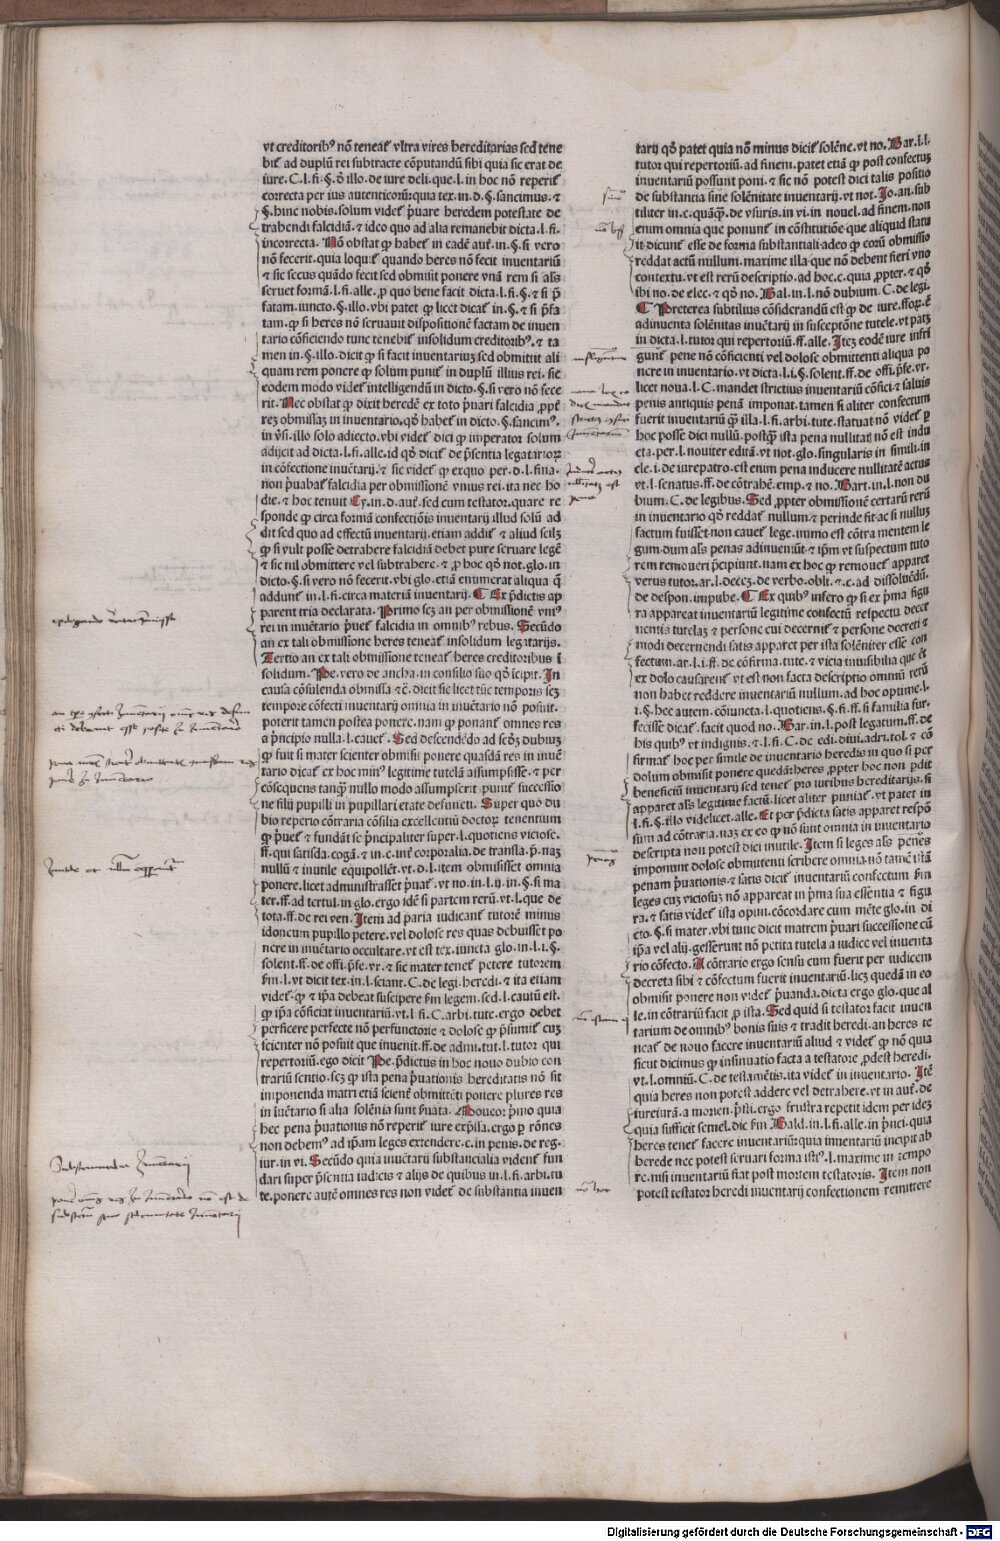 vt creditoribꝰ nō teneat̄ vltra vires hereditarias sed tene
bit̄ ad duplū rei subtracte cōputandū sibi quia sic erat de
iure. C. l. fi. §. q̄ illo. de iure deli. que. l. in hoc nō reperit̄
correcta per ius autenticorū: quia tex. in. d. §. sancimus. ⁊
§. hinc nobis. solum videt̄ p̄uare heredem potestate de
trahendi falcidiā. ⁊ ideo quo ad alia remanebit dicta. l. fi.
incorrecta. Nō obstat qꝫ habet̄ in eadē aut̄. in. §. si vero
nō fecerit. quia loquit̄ quando heres nō fecit inuentariū
⁊ sic secus quādo fecit sed obmisit ponere vnā rem si al's
seruet formā. l. fi. alle. p quo bene facit dicta. l. fi. §. ⁊ si p̄
fatam. iuncto. §. illo. vbi patet qꝫ licet dicat̄ in. §. ⁊ si p̄fa
tam. qꝫ si heres nō seruauit dispositionē factam de inuen
tario cōficiendo tunc tenebit̄ insolidum creditoribꝰ. ⁊ ta
men in. §. illo. dicit qꝫ si facit inuentariuꝫ sed obmittit ali
quam rem ponere qꝫ solum punit̄ in duplū illius rei. sic
eodem modo videt̄ intelligendū in dicto. §. si vero nō fece
rit. Nec obstat qꝫ dixit heredē ex toto p̄uari falcidia, ꝓpt̄
reꝫ obmissaꝫ in inuentario. qd̄ habet̄ in dicto. §. sancimꝰ.
in v̄si. illo solo adiecto. vbi videt̄ dici qꝫ imperator solum
adijcit ad dicta. l. fi. alle. id qd̄ dicit̄ de p̄sentia legatarioꝝ
in cōfectione inuētarij. ⁊ sic videt̄ qꝫ exquo per. d. l. fina.
non p̄uabat̄ falcidia per obmissionē vnius rei. ita nec ho
die. ⁊ hoc tenuit Cy. in. d. aut̄. sed cum testator. quare re
sponde qꝫ circa formā confectiōis inuentarij illud solū ad
dit sed quo ad effectū inuentarij. etiam addit̄ ⁊ aliud scilꝫ
qꝫ si vult posse detrahere falcidiā debet pure seruare legē
⁊ sic nil obmittere vel subtrahere. ⁊ ꝓ hoc qd̄ not. glo. in
dicto. §. si vero nō fecerit. vbi glo. etiā enumerat aliqua q̄
addunt̄ in. l. fi. circa materiā inuentarij. ¶ Ex p̄dictis ap
parent tria declarata. Primo scꝫ an per obmissionē vniꝰ
rei in inuētario p̄uet̄ falcidia in omnibꝰ rebus. Secūdo
an ex tali obmissione heres teneat̄ insolidum legatarijs.
Tertio an ex tali obmissione teneat̄ heres creditoribus ī
solidum. Pe. vero de ancha. in consilio suo qd̄ īcipit. In
causa cōsulenda obmissa ⁊ c̄. dicit sic licet tūc temporis scꝫ
tempore cōfecti inuentarij omnia in inuētario nō posuit.
poterit tamen postea ponere. nam qꝫ ponant̄ omnes res
a p̄ncipio nulla. l. cauet̄. Sed descendēdo ad scd̄ꝫ dubiuꝫ
qꝫ fuit si mater scienter obmisit ponere quasdā res in inuē
tario dicat̄ ex hoc minꝰ legitime tutelā assumpsisse. ⁊ per
cōsequens tanqꝫ nullo modo assumpserit punit̄ successio
ne filij pupilli in pupillari etate defuncti. Super quo du
bio reperio cōtraria cōsilia excellentiū doctoꝝ tenentium
qꝫ p̄uet̄ ⁊ fundāt se p̄ncipaliter super. l. quotiens viciose.
ff. qui satisda. cogā. ⁊ in. c. int̄ corporalia. de transla. p̄. naꝫ
nullū ⁊ inutile equipollēt. vt. d. l. item obmisisset omnia
ponere. licet administrasset p̄uat̄. vt no. in. l. ij. in. §. si ma
ter. ff. ad tertul. in glo. ergo idē si partem rerū. vt. l. que de
tota. ff. de rei ven. Item ad paria iudicant̄ tutorē minus
idoneum pupillo petere. vel dolose res quas debuisset po
nere in inuētario occultare. vt est tex. iuncta glo. in. l. i. §.
solent. ff. de offi. p̄fe. vr. ⁊ sic mater tenet̄ petere tutorem
s̄m. l. vt dicit tex. in. l. sciant. C. de legi. heredi. ⁊ ita etiam
videt̄. qꝫ ⁊ ip̄a debeat suscipere s̄m legem. sed. l. cautū est.
qꝫ ip̄a cōficiat inuentariū. vt. l. fi. C. arbi. tute. ergo debet
perficere perfecte nō perfunctorie ⁊ dolose qꝫ p̄sumit̄ cuꝫ
scienter nō posuit que inuenit. ff. de admi. tut. l. tutor qui
repertoriū. ego dicit Pe. p̄dictus in hoc nouo dubio con
trariū sentio. scꝫ qꝫ ista pena p̄uationis hereditatis nō sit
imponenda matri etiā scient̄ obmittēti ponere plures res
in īuētario si alia solēnia sunt s̄uata. Moueor p̄mo quia
hec pena p̄uationis nō reperit̄ iure exp̄ssa. ergo ꝑ rōnes
non debemꝰ ad ip̄am leges extendere. c. in penis. de reg.
iur. in vi. Secūdo quia inuētarij substancialia vident̄ fun
dari super p̄sentia iudicis ⁊ alijs de quibus in. l. fi. arbi. tu
te. ponere autē omnes res non videt̄ de substantia inuen
tarij qd̄ patet quia nō minus dicit̄ solēne. vt no. Bar. i. l.
tutor qui repertoriū. ad finem. patet etiā qꝫ post confectuꝫ
inuentariū possunt poni. ⁊ sic nō potest dici talis positio
de substantia siue solēnitate inuentarij. vt not. Jo. an. sub
tiliter in. c. quāqꝫ. de vsuris. in vi. in nouel. ad finem. non
enim omnia que ponunt̄ in cōstitutiōe que aliquid statu
it dicunt̄ esse de forma substantiali adeo qꝫ eorū obmissio
reddat actū nullum. maxime illa que nō debent fieri vno
contextu. vt est rerū descriptio. ad hoc. c. quia ꝓpter. ⁊ qd̄
ibi no. de elec. ⁊ qd̄ no. Bal. in. l. nō dubium. C. de legi.
¶ Preterea subtilius cōsiderandū est qꝫ de iure. ffoꝝ. ē
adinuenta solēnitas inuētarij in susceptōne tutele. vt patꝫ
in dicta. l. tutor qui repertoriū. ff. alle. Iteꝫ eodē iure infri
gunt̄ pene nō cōficienti vel dolose obmittenti aliqua po
nere in inuentario. vt dicta. l. i. §. solent. ff. de offi. p̄fe. vr.
licet noua. l. C. mandet strictius inuentariū cōfici ⁊ saluis
penis antiquis penā imponat. tamen si aliter confectum
fuerit inuentariū qꝫ illa. l. fi. arbi. tute. statuat nō videt̄ ꝑ
hoc posse dici nullū. postqꝫ ista pena nullitatꝭ nō est indu
cta. per. l. nouiter editā. vt not. glo. singularis in simili. in
cle. i. de iurepatro. est enim pena inducere nullitatē actus
vt. l. senatus. ff. de cōtrahē. emp. ⁊ no. Bart. in. l. non du
bium. C. de legibus. Sed ꝓpter obmissionē certarū rerū
in inuentario qd̄ reddat̄ nullum ⁊ perinde sit ac si nulluꝫ
factum fuisset non cauet̄ lege. immo est cōtra mentem le
gum dum al's penas adinueniūt ⁊ ip̄m vt suspectum tuto
rem remoueri p̄cipiunt. nam ex hoc qꝫ remouet̄ apparet
verus tutor. ar. l. deceꝫ. de verbo. obli. ⁊. c. ad dissoluēdū.
de despon. impube. ¶ Ex quibꝰ infero qꝫ si ex p̄ma figu
ra appareat inuentariū legitime confectū respectu decer
nentis tutelaꝫ ⁊ persone cui decernit̄ ⁊ persone decreti ⁊
modi decernendi satis apparet per ista solēniter esse con
fectum. ar. l. i. ff. de cōfirma. tute. ⁊ vicia inuisibilia que ēt
ex dolo causarent̄ vt est non facta descriptio omniū rerū
non habet reddere inuentariū nullum. ad hoc optime. l.
i. §. hec autem. cōiuncta. l. quotiens. §. fi. ff. si familia fur.
fecisse dicat̄. facit quod no. Bar. in. l. post legatum. ff. de
his quibꝰ vt indignis. ⁊. l. fi. C. de edi. diui. adri. tol. ⁊ cō
firmat̄ hoc per simile de inuentario heredis in quo si per
dolum obmisit ponere quedā: heres ꝓpter hoc non ꝑdit
beneficiū inuentarij sed tenet̄ pro viribus hereditarijs. si
apparet al's legitime factū. licet aliter puniat̄. vt patet in
l. fi. §. illo videlicet. alle. Et per p̄dicta satis apparet respō
sum ad cōtraria. naꝫ ex eo qꝫ nō sunt omnia in inuentario
descripta non potest dici inutile. Item si leges al's penes
imponunt dolose obmittenti scribere omnia. nō tamē istā
penam p̄uationis. ⁊ satis dicit̄ inuentariū confectum s̄m
leges cuꝫ viciosuꝫ nō appareat in p̄ma sua essentia ⁊ figu
ra. ⁊ satis videt̄ ista opini. cōcordare cum mēte glo. in di
cto. §. si mater. vbi tunc dicit matrem p̄uari successione cū
ip̄a vel alij. gesserunt nō petita tutela a iudice vel inuenta
rio cōfecto. A cōtrario ergo sensu cum fuerit per iudicem
decreta sibi ⁊ cōfectum fuerit inuentariū. licꝫ quedā in eo
obmisit ponere non videt̄ p̄uanda. dicta ergo glo. que al
le. in cōtrariū facit ꝓ ista. Sed quid si testator facit inuen
tarium de omnibꝰ bonis suis ⁊ tradit heredi. an heres te
neat̄ de nouo facere inuentariū aliud ⁊ videt̄ qꝫ nō quia
sicut dicimus qꝫ insinuatio facta a testatore ꝓdest heredi.
vt. l. omniū. C. de testamētis. ita videt̄ in inuentario. Itē
quia heres non potest addere vel detrahere. vt in aut̄. de
iureiurā. a morien. p̄sti. ergo frustra repetit̄ idem per ideꝫ
quia sufficit semel. dic s̄m Bald. in. l. fi. alle. in p̄nci. quia
heres tenet̄ facere inuentariū: quia inuentariū incipit ab
herede nec potest seruari forma istiꝰ. l. maxime in tempo
re. nisi inuentariū fiat post mortem testatoris. Item non
potest testator heredi inuentarij confectionem remittere
Digitalisierung gefördert durch die Deutsche Forschungsgemeinschaft - DFG